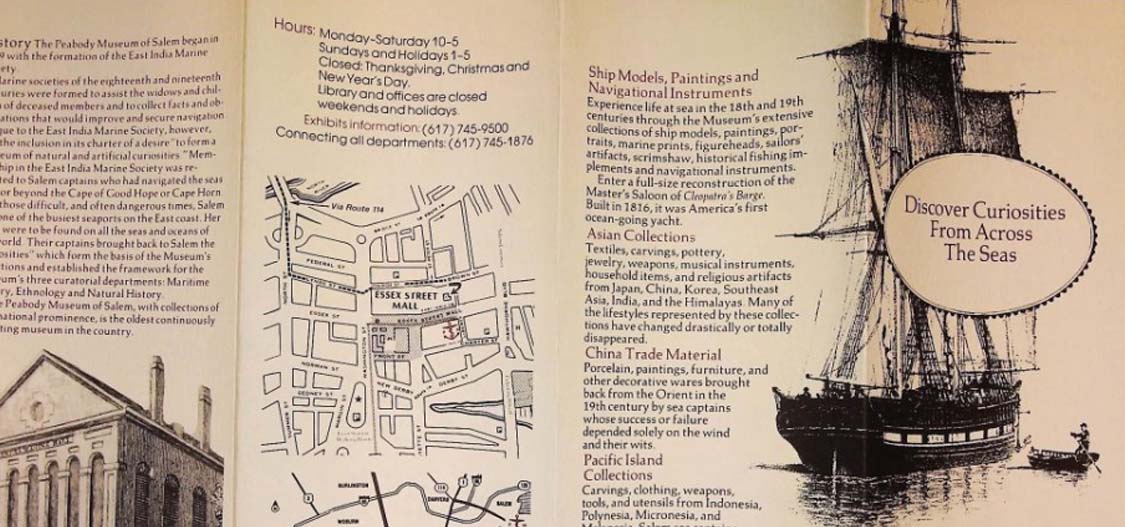 story The Peabody Museum of Salem began in
9 with the formation of the East India Marine
ety.
Marine societies of the eighteenth and nineteenth
uries were formed to assist the widows and chil-
of deceased members and to collect facts and ob-
ations that would improve and secure navigation
que to the East India Marine Society, however,
the inclusion in its charter of a desire "to form a
eum of natural and artificial curiosities." Mem-
hip in the East India Marine Society was re-
ted to Salem captains who had navigated the seas
or beyond the Cape of Good Hope or Cape Horn.
those difficult, and often dangerous times, Salem
one of the busiest seaports on the East coast. Her
were to be found on all the seas and oceans of
world. Their captains brought back to Salem the
osities" which form the basis of the Museum's
tions and established the framework for the
um's three curatorial departments: Maritime
ry, Ethnology and Natural History.
e Peabody Museum of Salem, with collections of
national prominence, is the oldest continuously
ting museum in the country.
Hours: Monday–Saturday 10–5
Sundays and Holidays 1–5
Closed: Thanksgiving, Christmas and
New Year's Day.
Library and offices are closed
weekends and holidays.
Exhibits information: (617) 745-9500
Connecting all departments: (617) 745-1876
Via Route 114
BRIDGE ST
FEDERAL ST
BROWN ST
ESSEX STREET
MALL
ESSEX STREET MALL
ESSEX ST
WASHINGTON ST
HAWTHORNE BLVD
FRONT ST
CHARTER ST
NORMAN ST
NEW DERBY
DERBY ST
GEDNEY ST
MARGIN ST
BURLINGTON
WOBURN
DANVERS
114
SALEM
Ship Models, Paintings and
Navigational Instruments
Experience life at sea in the 18th and 19th
centuries through the Museum's extensive
collections of ship models, paintings, por-
traits, marine prints, figureheads, sailors'
artifacts, scrimshaw, historical fishing im-
plements and navigational instruments.
Enter a full-size reconstruction of the
Master's Saloon of Cleopatra's Barge.
Built in 1816, it was America's first
ocean-going yacht.
Asian Collections
Textiles, carvings, pottery,
jewelry, weapons, musical instruments,
household items, and religious artifacts
from Japan, China, Korea, Southeast
Asia, India, and the Himalayas. Many of
the lifestyles represented by these collec-
tions have changed drastically or totally
disappeared.
China Trade Material
Porcelain, paintings, furniture, and
other decorative wares brought
back from the Orient in the
19th century by sea captains
whose success or failure
depended solely on the wind
and their wits.
Pacific Island
Collections
Carvings, clothing, weapons,
tools, and utensils from Indonesia,
Polynesia, Micronesia, and
Discover Curiosities
From Across
The Seas